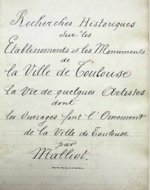 Recherches Historiques
sur les
Etablissements et les Monuments
de la Ville de Toulouse
la Vie de quelques Artistes
dont
les ouvrages font l'Ornement
de la Ville de Toulouse
par
Malliot.